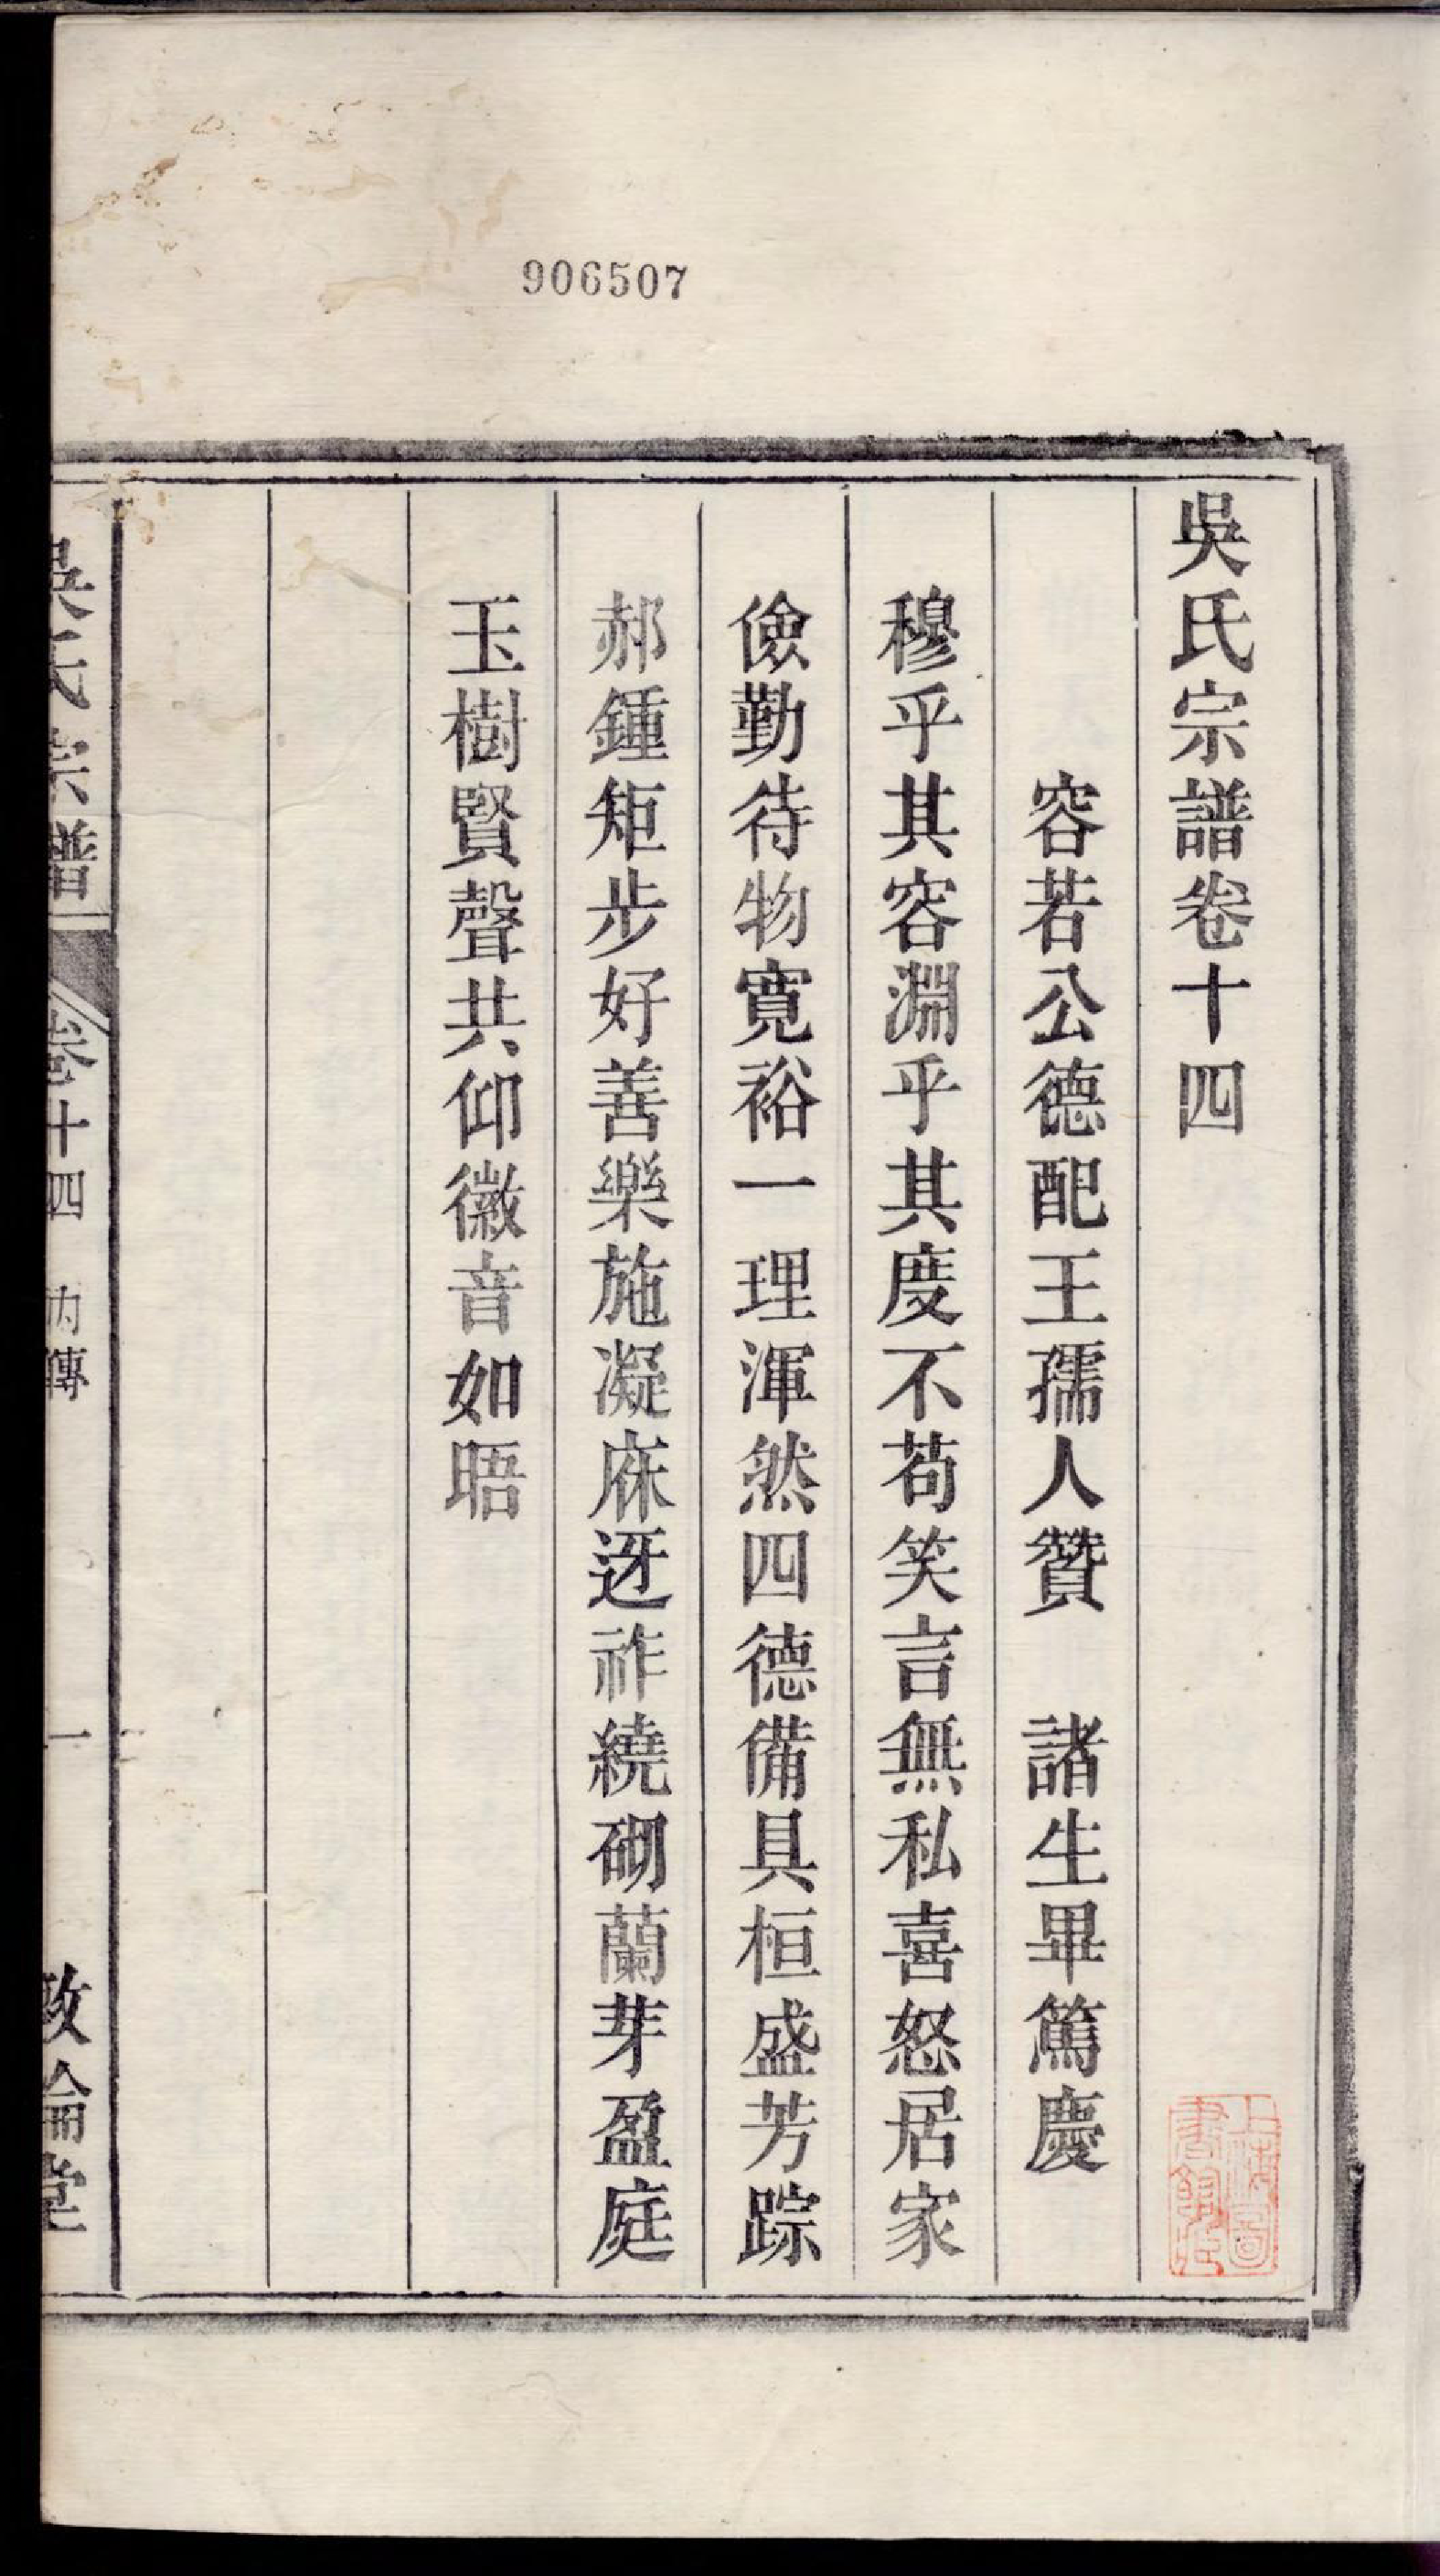 906507
吳氏宗譜卷十四
容若公德配王孺人贊　諸生畢篤慶
穆乎其容淵乎其度不苟笑言無私喜怒居家
儉勤待物寬裕一理渾然四德備具桓盛芳踪
郝鍾矩步好善樂施凝庥迓祚繞砌蘭芽盈庭
玉樹賢聲共仰徽音如晤
吳氏宗譜　卷十四　內傳　一　敦倫堂
上海圖書館藏